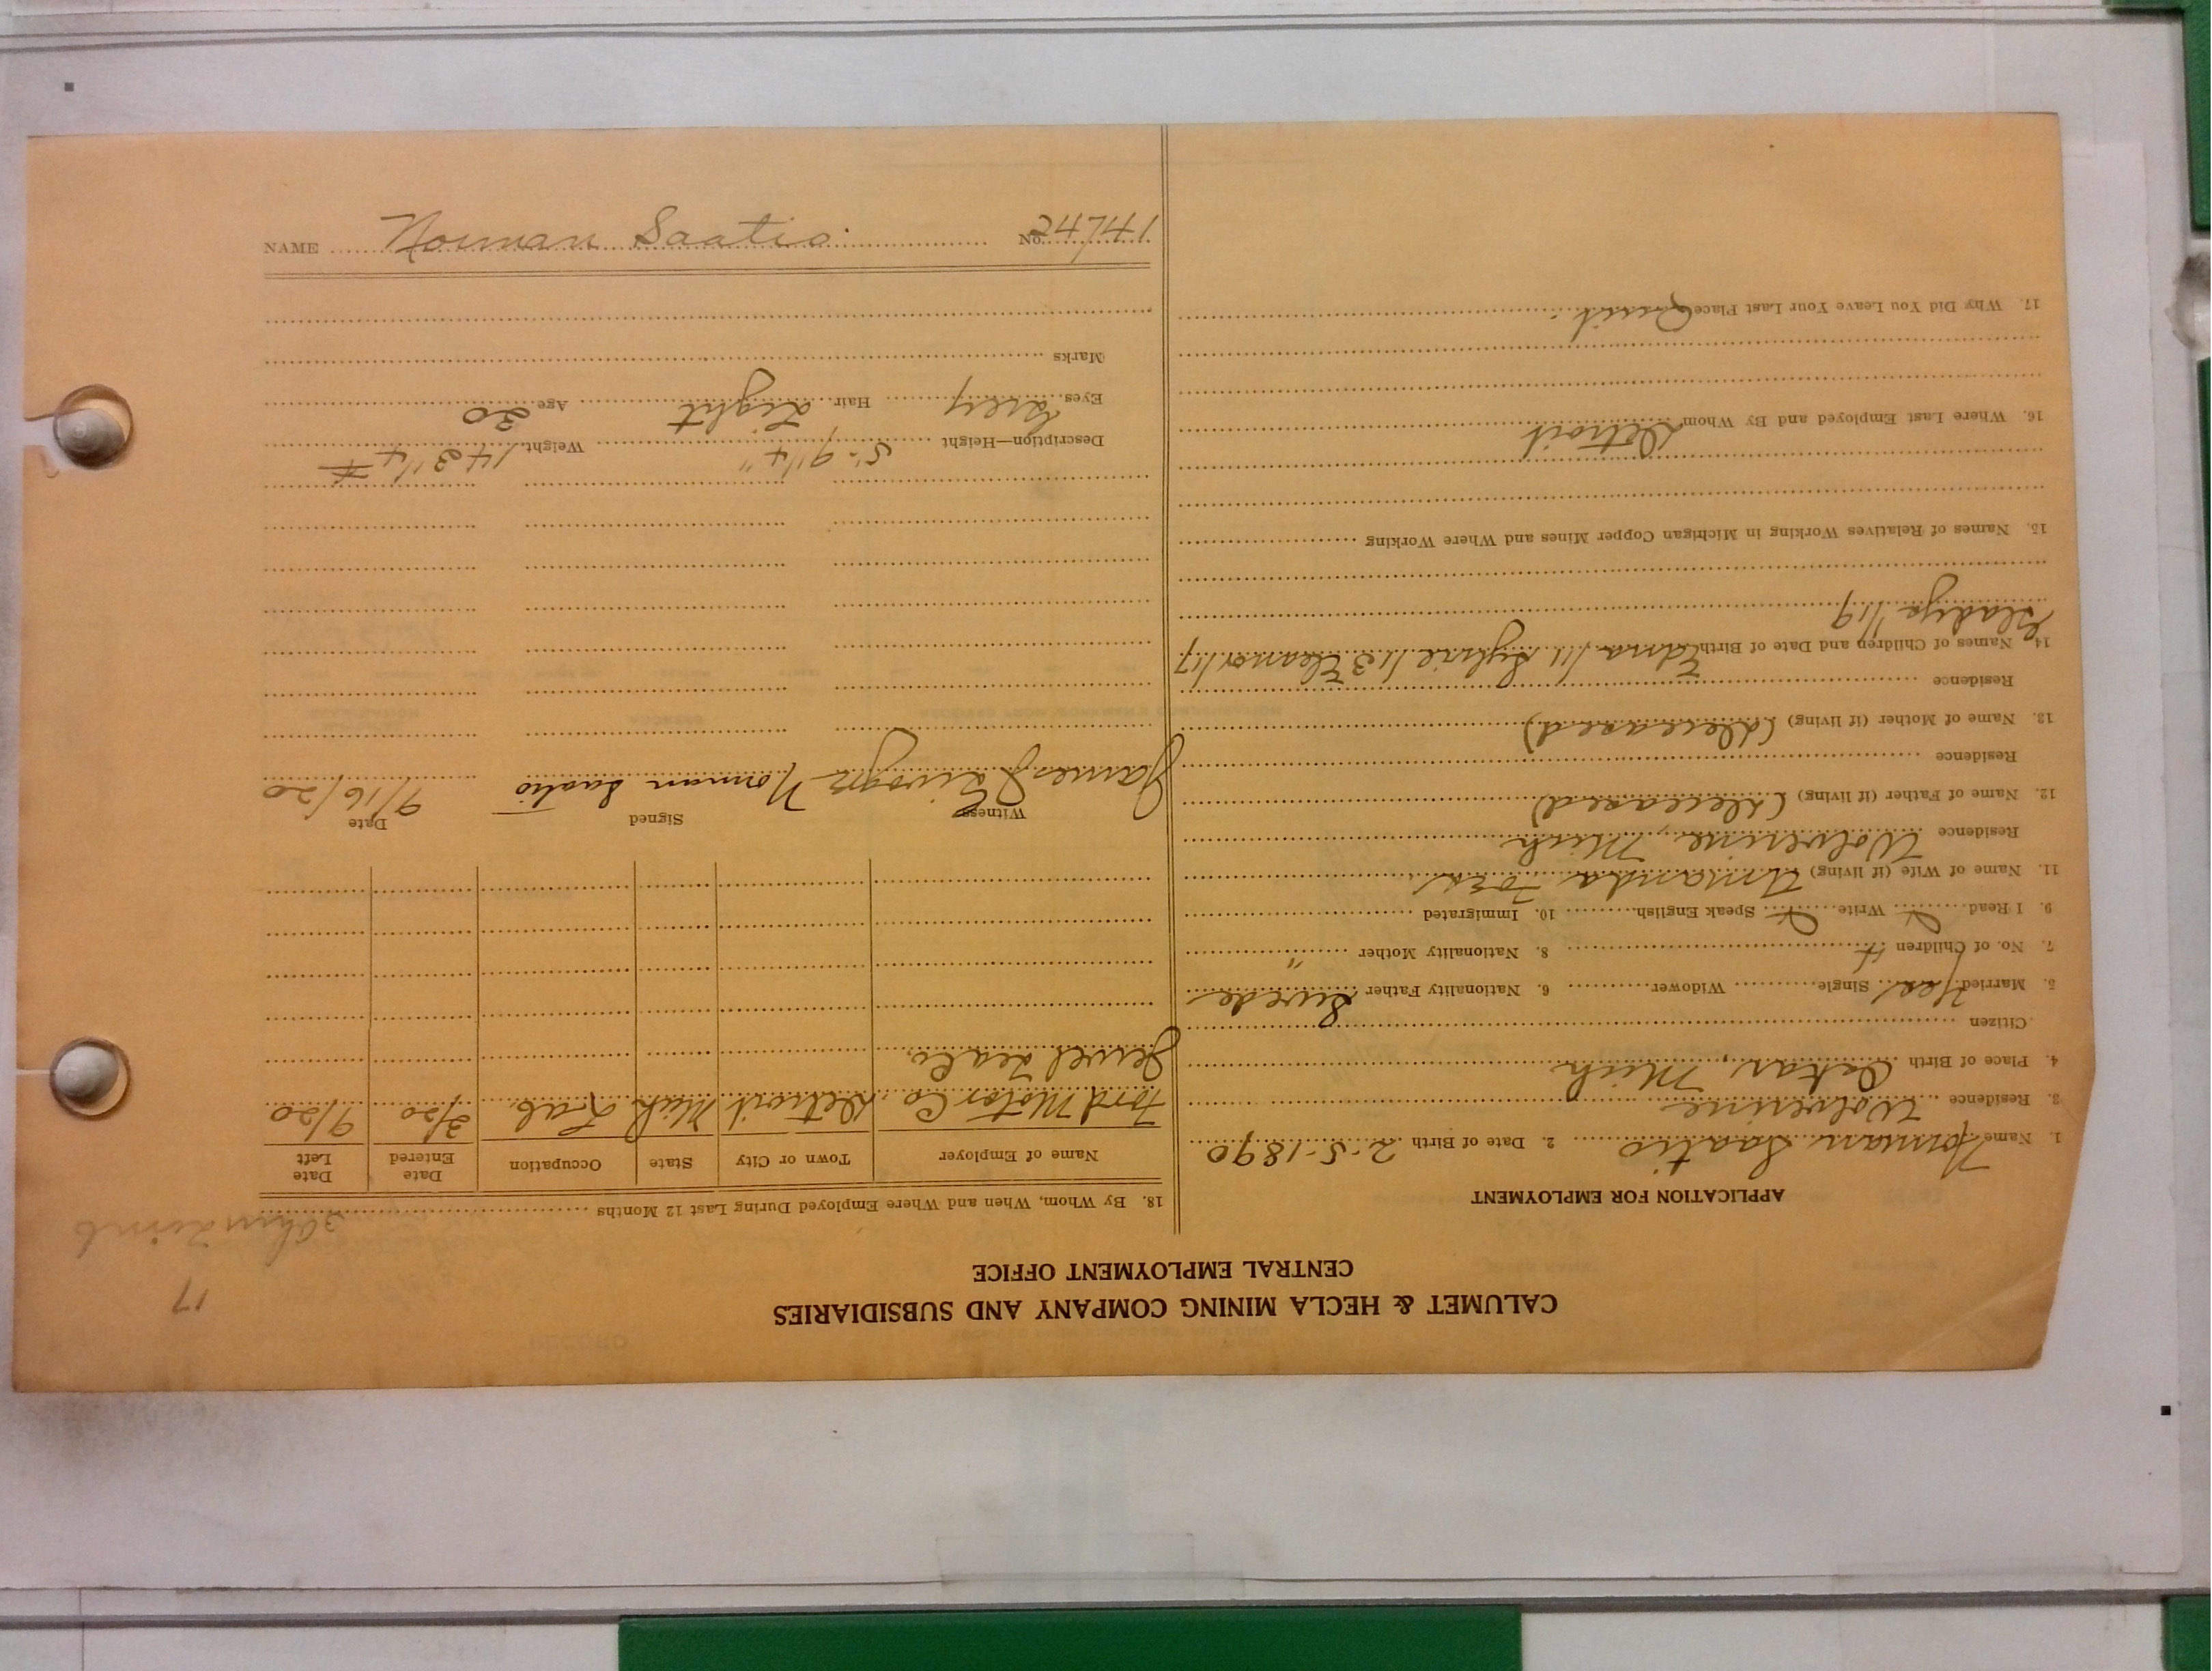 CALUMET & HECLA MINING COMPANY AND SUBSIDIARIES
CENTRAL EMPLOYMENT OFFICE
17
APPLICATION FOR EMPLOYMENT
1. Name Norman Saatio 2. Date of Birth 2-5-1890
3. Residence Wolverine
4. Place of Birth Oskar, Mich
Citizen
5. Married Yes Single Widower 6. Nationality Father Swede
7. No. of Children 4 8. Nationality Mother "
9. I Read Write Speak English 10. Immigrated
11. Name of Wife (if living) Amanda
Residence Wolverine, Mich
12. Name of Father (if living) (deceased)
Residence
13. Name of Mother (if living) (deceased)
Residence
14. Names of Children and Date of Birth Edna /11 Sylvie /13 Eleanor /17
Gladys /19
15. Names of Relatives Working in Michigan Copper Mines and Where Working
16. Where Last Employed and By Whom Detroit
17. Why Did You Leave Your Last Place Quit.
18. By Whom, When and Where Employed During Last 12 Months
Name of Employer Town or City State Occupation Date Entered Date Left
Ford Motor Co. Detroit Mich Lab. 3/20 9/20
Jewel Tea Co.
Witness Signed Date
James Norman Saatio 9/16/20
Description—Height 5'-9 1/4" Weight 143 1/4 #
Eyes Grey Hair Light Age 30
Marks
NAME Norman Saatio No. 24741